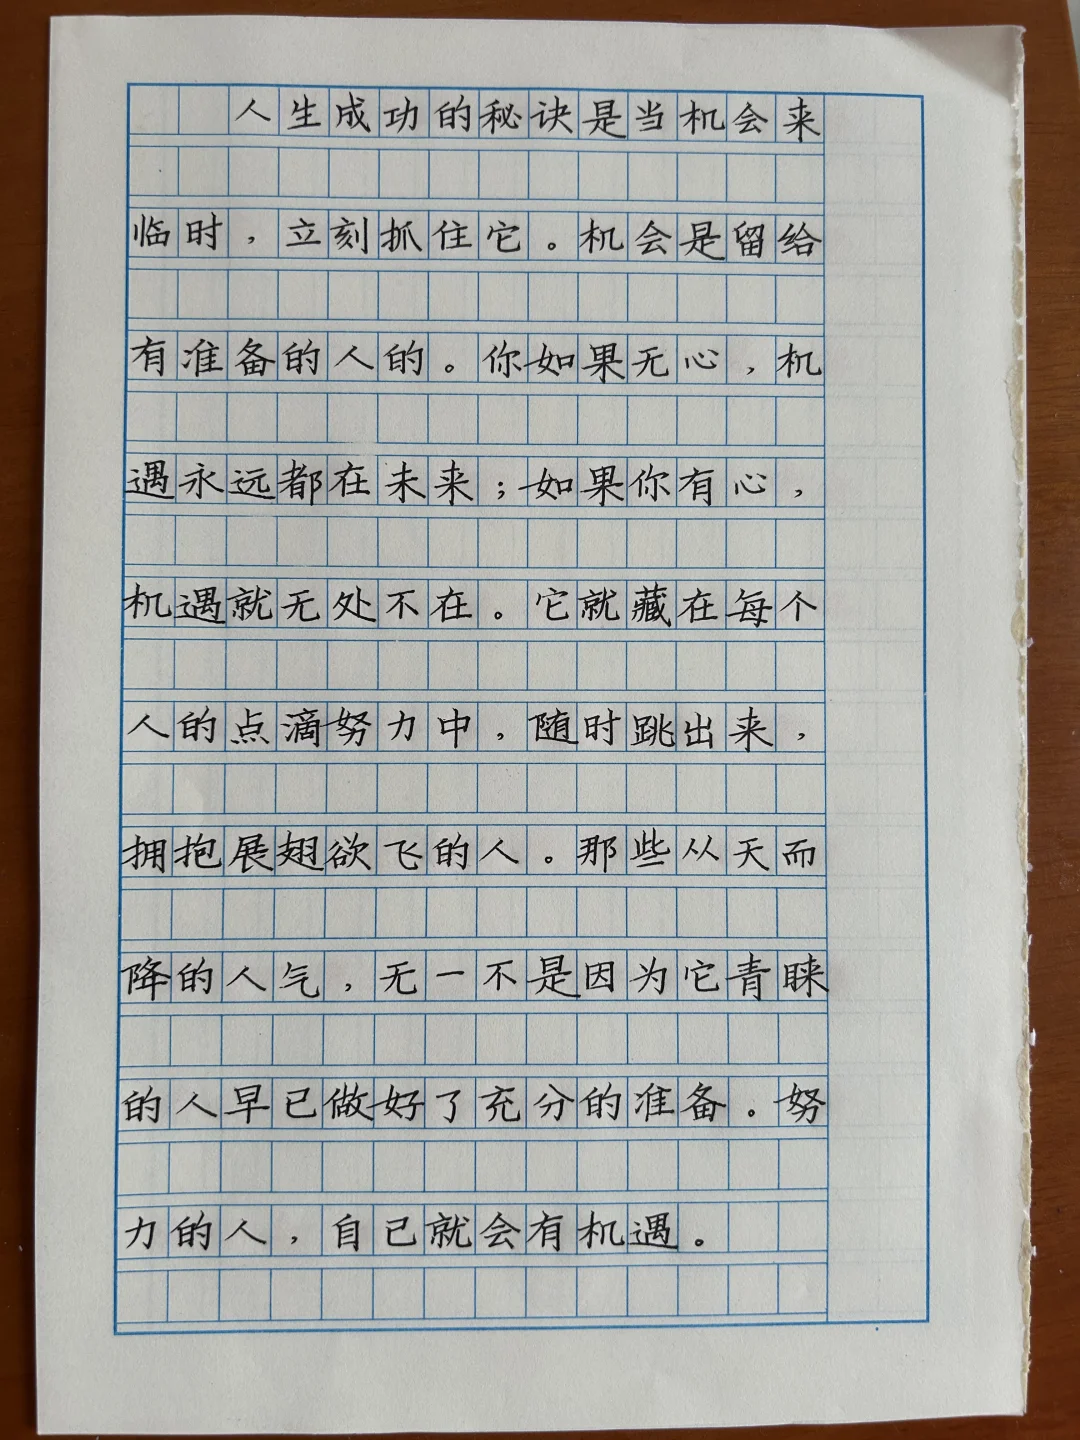 人生成功的秘诀是当机会来
临时，立刻抓住它。机会是留给
有准备的人的。你如果无心，机
遇永远都在未来；如果你有心，
机遇就无处不在。它就藏在每个
人的点滴努力中，随时跳出来，
拥抱展翅欲飞的人。那些从天而
降的人气，无一不是因为它青睐
的人早已做好了充分的准备。努
力的人，自己就会有机遇。